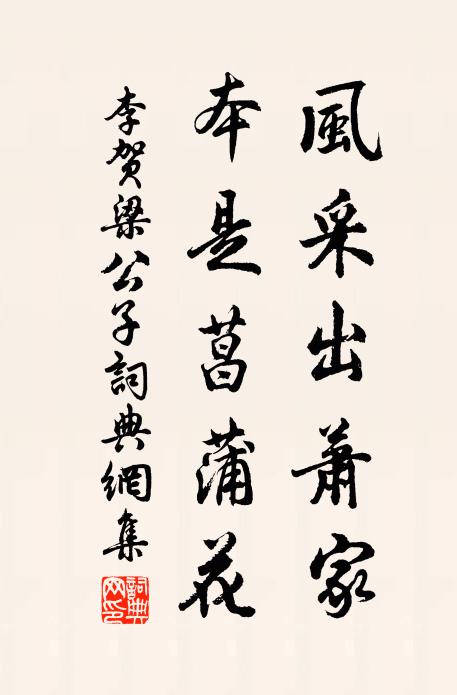 風采出蕭家
本是菖蒲花
李賀梁公子詞典網集
詞典網印